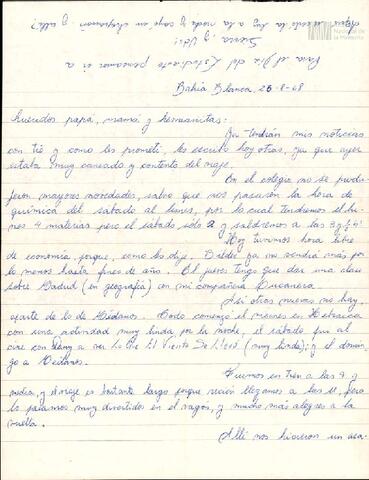 Para el Día del Estudiante pensamos ir a
Sierra, y Uds?
Bahía Blanca, 26-8-68
Queridos papá, mamá y hermanitas:
Ya tendrán mis noticias
con tío y como les prometí, les escribo hoy otras, ya que ayer
estaba muy cansado y contento del viaje.
En el colegio no se produ-
jeron mayores novedades, salvo que nos pasaron la hora de
química del sábado al lunes, por lo cual tendremos el lu-
nes 4 materias pero el sábado sólo 2 y saldremos a las
Hoy tuvimos hora libre
de economía, porque, como les dije, ya no vendrá más por
lo menos hasta fines de año. El jueves tengo que dar una clase
sobre (en geografía) con mi compañera
Así otras nuevas no hay,
aparte de lo de Médanos. Todo comenzó el viernes en Hebraica
con una actividad muy linda por la noche, el sábado fui al
cine con a ver Lo Que El Viento Se Llevó (muy linda) y el domin-
go a Médanos.
Fuimos en tren a las 9 y
media, y el viaje es bastante largo porque recién llegamos a las 11, pero
lo pasamos muy divertidos en el vagón, y mucho más alegres a la
vuelta.
Allí nos hicieron un asa-